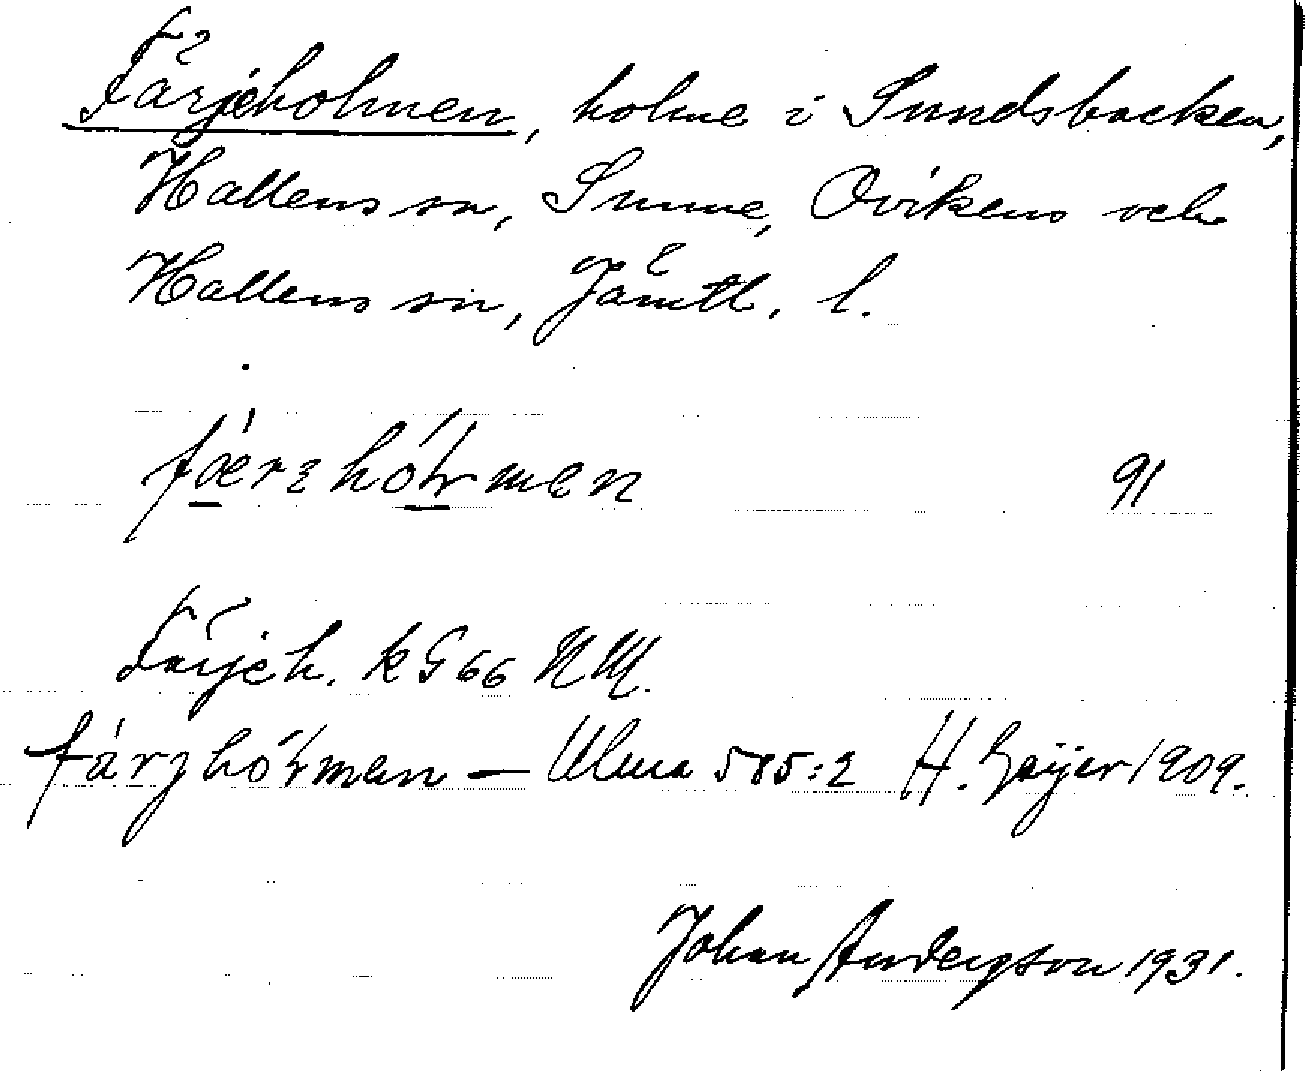 Färjeholmen, holme i Sundsbacken,
Hallens sn, Sunne, Ovikens och
Hallens sn, Jämtl. l.
91
Färjeh. kG66 NM.
Ulma 585:2 H. Geijer 1909.
Johan Anderson 1931.